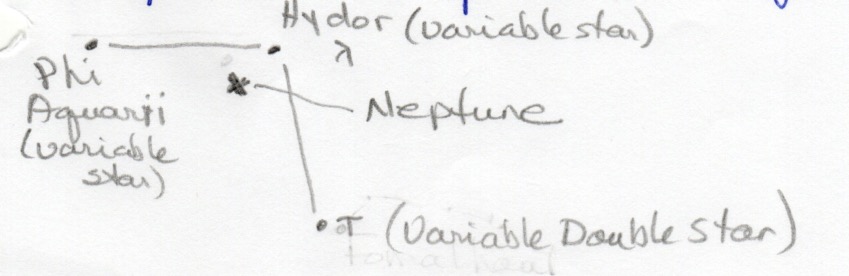 Hydor (variable star)
λ
Phi
Aquarii
(variable
star)
Neptune
T (Variable Double Star)